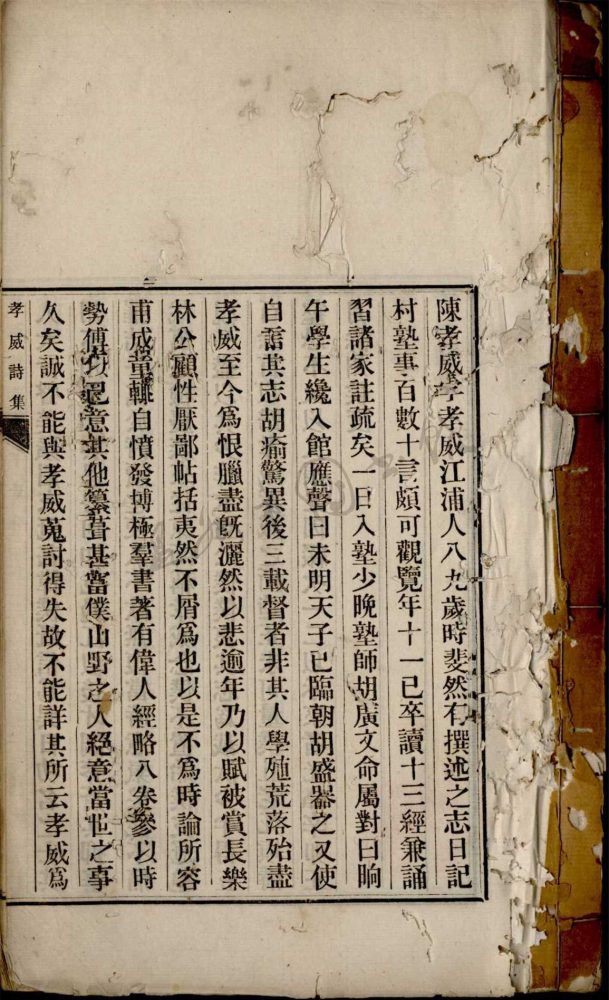 陳孝威字孝威江浦人八九歲時斐然有撰述之志日記
村塾事百數十言頗可觀覽年十一已卒讀十三經兼誦
習諸家註疏矣一日入塾少晚塾師胡廣文命屬對曰晌
午學生纔入館應聲曰未明天子已臨朝胡盛器之又使
自言其志胡瘉驚異後三載督者非其人學殖荒落殆盡
孝威至今爲恨臘盡旣灑然以悲逾年乃以賦被賞長樂
林公顧性厭鄙帖括夷然不屑爲也以是不爲時論所容
甫成童輒自憤發博極羣書著有偉人經略八卷參以時
勢傅以己意其他纂葺甚富僕山野之人絕意當世之事
久矣誠不能與孝威蒐討得失故不能詳其所云孝威爲
孝威詩集